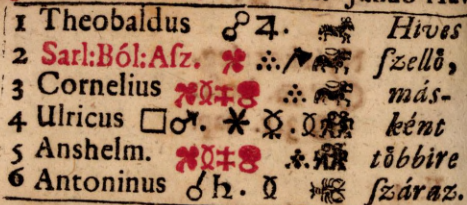 1 Theobaldus ☍ ♃. Hives
2 Sarl:Ból:Aſz. ſzellő,
3 Cornelius más-
4 Ulricus □ ♂. ⚹ ☿. ként
5 Anshelm. többire
6 Antoninus ☌ ♄. ☿ ſzáraz.